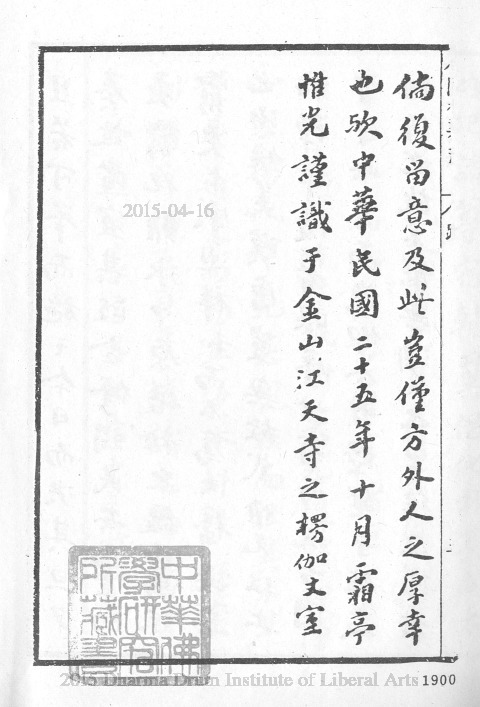 倘復畱意及此豈僅方外人之厚幸
也歟中華民國二十五年十月霜亭
惟光謹識于金山江天寺之楞伽丈室
中華佛
學研究
所藏書
2015-04-16
2015 Dharma Drum Institute of Liberal Arts
1900